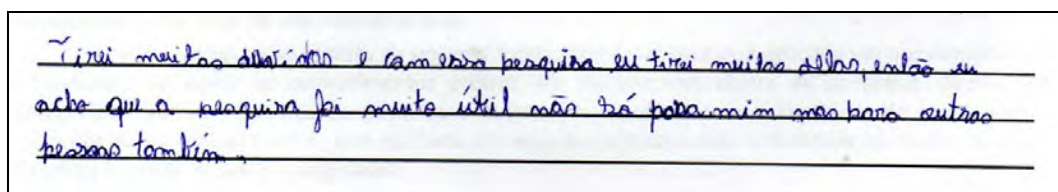 Tirei muitas dúvidas e com essa pesquisa eu tirei muitas delas, então eu
acho que a pesquisa foi muito útil não só para mim mas para outras
pessoas também.